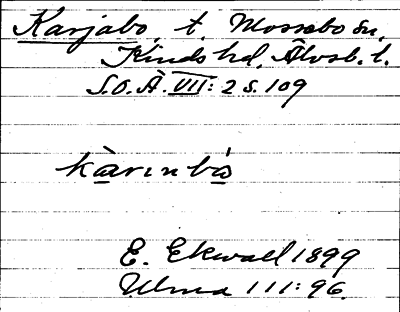 Karjabo, t. Mossebo sn,
Kinds hd, Älvsb. l.
S.O.Ä. VII: 2 s. 109
kàrınbó
E. Ekwall 1899
Ulma 111:96.